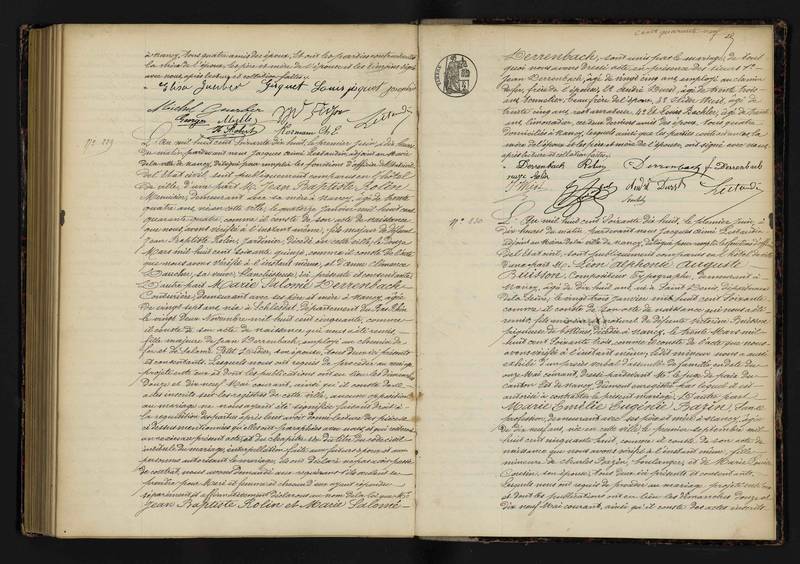 à Nancy, tous quatre amis des époux, et ont les parties contractantes
la mère de l'époux, les père et mère de l'épouse et les témoins signé
avec nous après lecture et collation faites.
Girquet Louis
Michel
Georges
Hermann Ch. E.
N° 229
L'An mil huit cent soixante dix huit, le premier juin, à dix heures
du matin, pardevant nous Jacques Aimé Lietaudin, adjoint au Maire
de la ville de Nancy, délégué pour remplir les fonctions d'officier
de l'état civil, sont publiquement comparus en l'hôtel
de ville, d'une part M. Jean Baptiste Rolin
Menuisier, demeurant avec sa mère à Nancy, âgé de trente
quatre ans, né en cette ville, le quatorze janvier mil huit cent
quarante quatre, comme il conste de son acte de naissance
que nous avons vérifié à l'instant même, fils majeur de défunt
Jean Baptiste Rolin, Jardinier, décédé en cette ville, le douze
Mars mil huit cent soixante quinze, comme il conste de l'acte
que nous avons vérifié à l'instant même, et d'Anne
sa veuve, blanchisseuse, ici présente et consentante
D'autre part Marie Salomé Derrenbach
Couturière, demeurant avec ses père et mère à Nancy, âgée
de vingt sept ans, née à Schlestadt, département du Bas Rhin
le vingt deux Novembre mil huit cent cinquante, comme
il conste de son acte de naissance qui nous a été remis,
fille majeure de Jean Derrenbach, employé au chemin de
fer et de Salomé son épouse, tous deux ici présents
et consentants. Lesquels nous ont requis de procéder au mariage
projeté entre eux et dont les publications ont eu lieu les dimanches
douze et dix neuf Mai courant, ainsi qu'il conste des
actes inscrits sur les registres de cette ville, aucune opposition
au mariage ne nous ayant été signifiée, faisant droit à
la réquisition des parties, après leur avoir donné lecture des pièces
ci dessus mentionnées
du chapitre six du titre du code civil
intitulé du mariage, interpellation faite aux futurs époux et aux
personnes autorisant le mariage,
de contrat, nous avons demandé aux requérants s'ils veulent se
prendre pour mari et femme et chacun d'eux ayant répondu
séparément et affirmativement déclarons au nom de la loi que Mr.
Jean Baptiste Rolin et Marie Salomé
Cent quarante neuf
Derrenbach, sont unis par le mariage, de tout
quoi nous avons dressé acte en présence des sieurs 1°
Jean Derrenbach, âgé de vingt cinq ans, employé au chemin
de fer, frère de l'épouse; 2° André âgé de trente
ans, tonnelier, beau frère de l'époux, 3°
trente cinq ans, 4° Louis Bachler, âgé de
ans, limonadier, ces deux derniers amis des époux, tous quatre
domiciliés à Nancy, lesquels ainsi que les parties contractantes,
la mère de l'époux et les père et mère de l'épouse, ont signé avec nous
après lecture et collation faites.
Derrenbach Rolin Derrenbach J Derrenbach
Rolin
André
Lietaudin
N° 230
L'An mil huit cent soixante dix huit, le premier juin, à
dix heures du matin, pardevant nous Jacques Aimé Lietaudin
adjoint au Maire de la ville de Nancy, délégué pour remplir les fonctions d'officier
de l'état civil, sont publiquement comparus en l'hôtel de ville
d'une part M. Léon Alphonse Auguste
Buisson, Compositeur Typographe, demeurant à
Nancy, âgé de dix huit ans, né à Saint Denis, département
de la Seine, le vingt trois janvier mil huit cent soixante
comme il conste de son acte de naissance qui nous a été
remis, fils mineur naturel de défunte Buisson
piqueuse de bottines, décédée à Nancy, le trente Mars mil
huit cent soixante trois, comme il conste de l'acte que nous
avons vérifié à l'instant même, ledit mineur nous a aussi
exhibé d'un procès verbal d'assemblée de famille en date du
onze Mai courant, dressé pardevant M. le juge de paix du
canton Est de Nancy, dûment enregistré par lequel il est
autorisé à contracter le présent mariage. D'autre part
Marie Emélie Eugénie Bazin, sans
profession, demeurant avec ses père et mère à Nancy, âgée
de dix neuf ans, née en cette ville le premier septembre mil
huit cent cinquante huit, comme il conste de son acte de
naissance que nous avons vérifié à l'instant même, fille
mineure de Charles Bazin, boulanger, et de Marie
son épouse, tous deux ici présents et consentants.
Lesquels nous ont requis de procéder au mariage projeté entre eux
et dont les publications ont eu lieu les dimanches douze et
dix neuf Mai courant, ainsi qu'il conste des actes inscrits